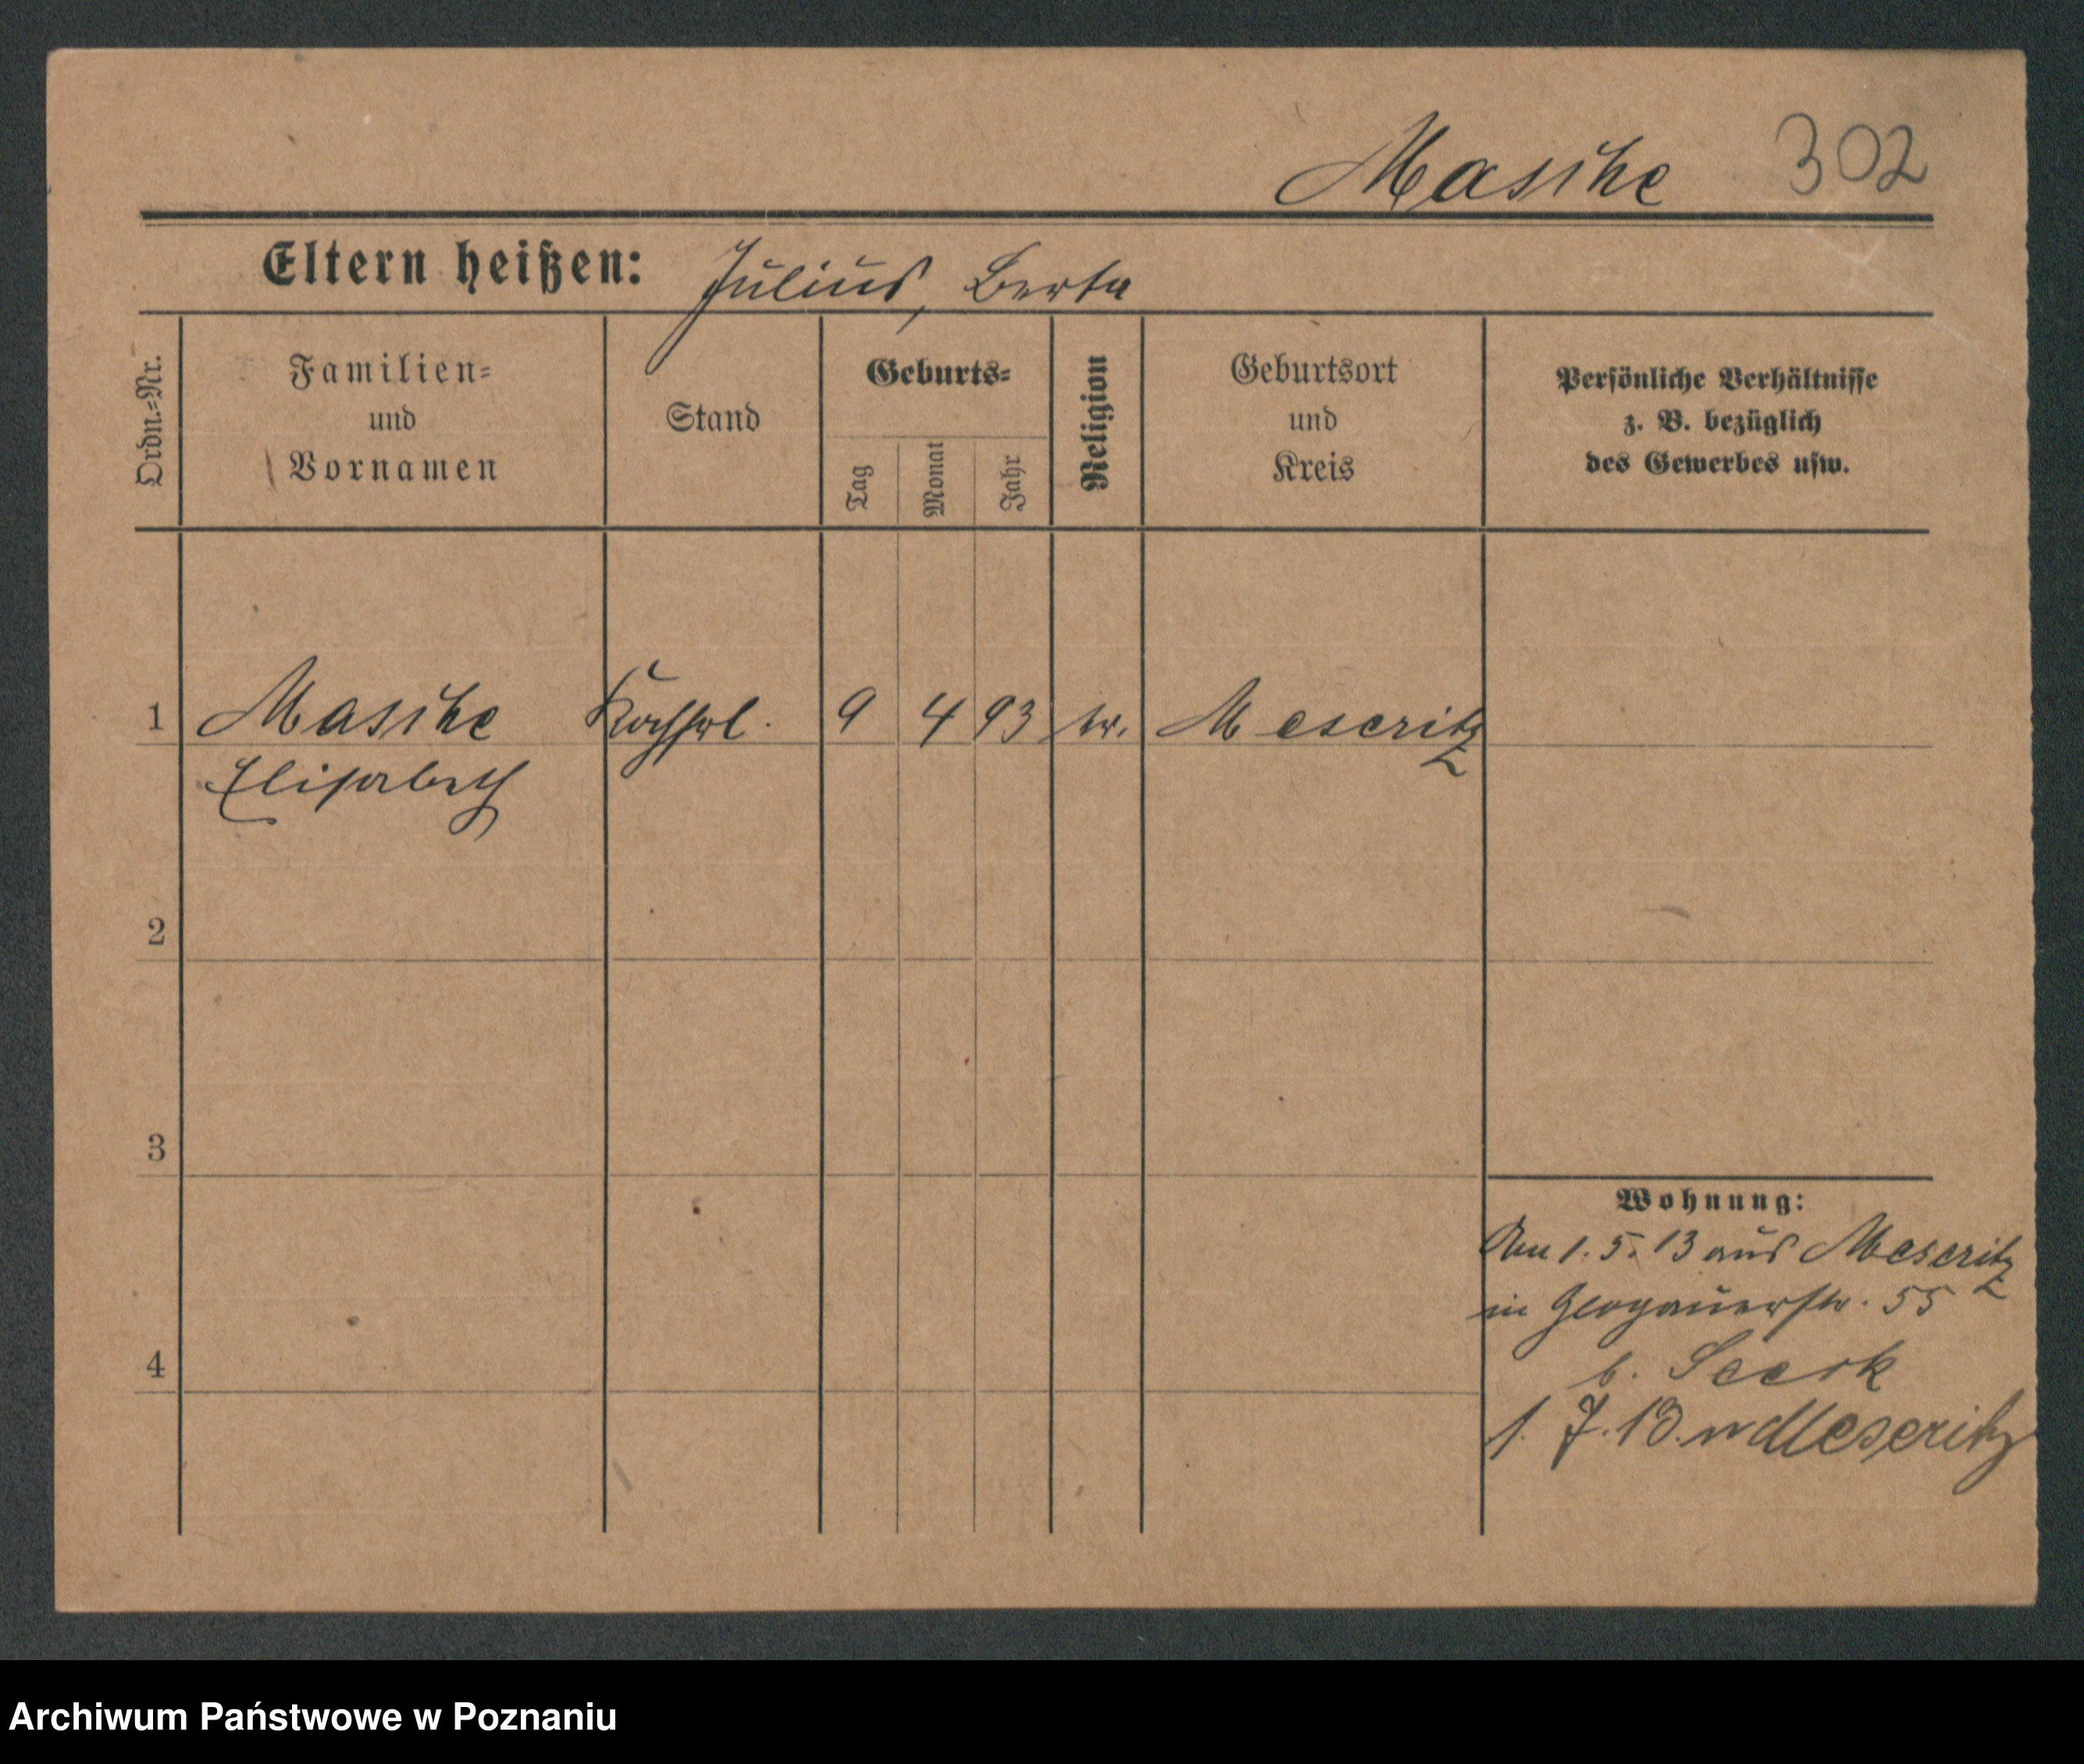 Maschke 302
Eltern heißen: Julius, Berta
Ordn.=Nr.
Familien=
und
Vornamen
Stand
Geburts=
Tag
Monat
Jahr
Religion
Geburtsort
und
Kreis
Persönliche Verhältnisse
z. B. bezüglich
des Gewerbes usw.
1 Maschke Kochfrl. 9 4 93 ev. Meseritz
Elisabeth
2
3
4
Wohnung:
Am 1. 5. 13 aus Meseritz
in Glogauerstr. 55
b.
1. 7. 13. n Meseritz
Archiwum Państwowe w Poznaniu